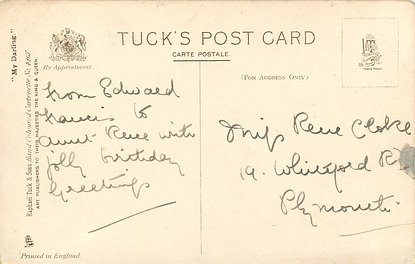 TUCK'S POST CARD
CARTE POSTALE
By Appointment.
(FOR ADDRESS ONLY.)
TRADE MARK
" My Darling."
Raphael Tuck & Sons
ART PUBLISHERS TO THEIR MAJESTIES THE KING & QUEEN.
Printed in England.
From Edward
Francis to
Aunt Rene with
jolly birthday
Greetings
Miss Rene Cloke
19. Whiteford R
Plymouth